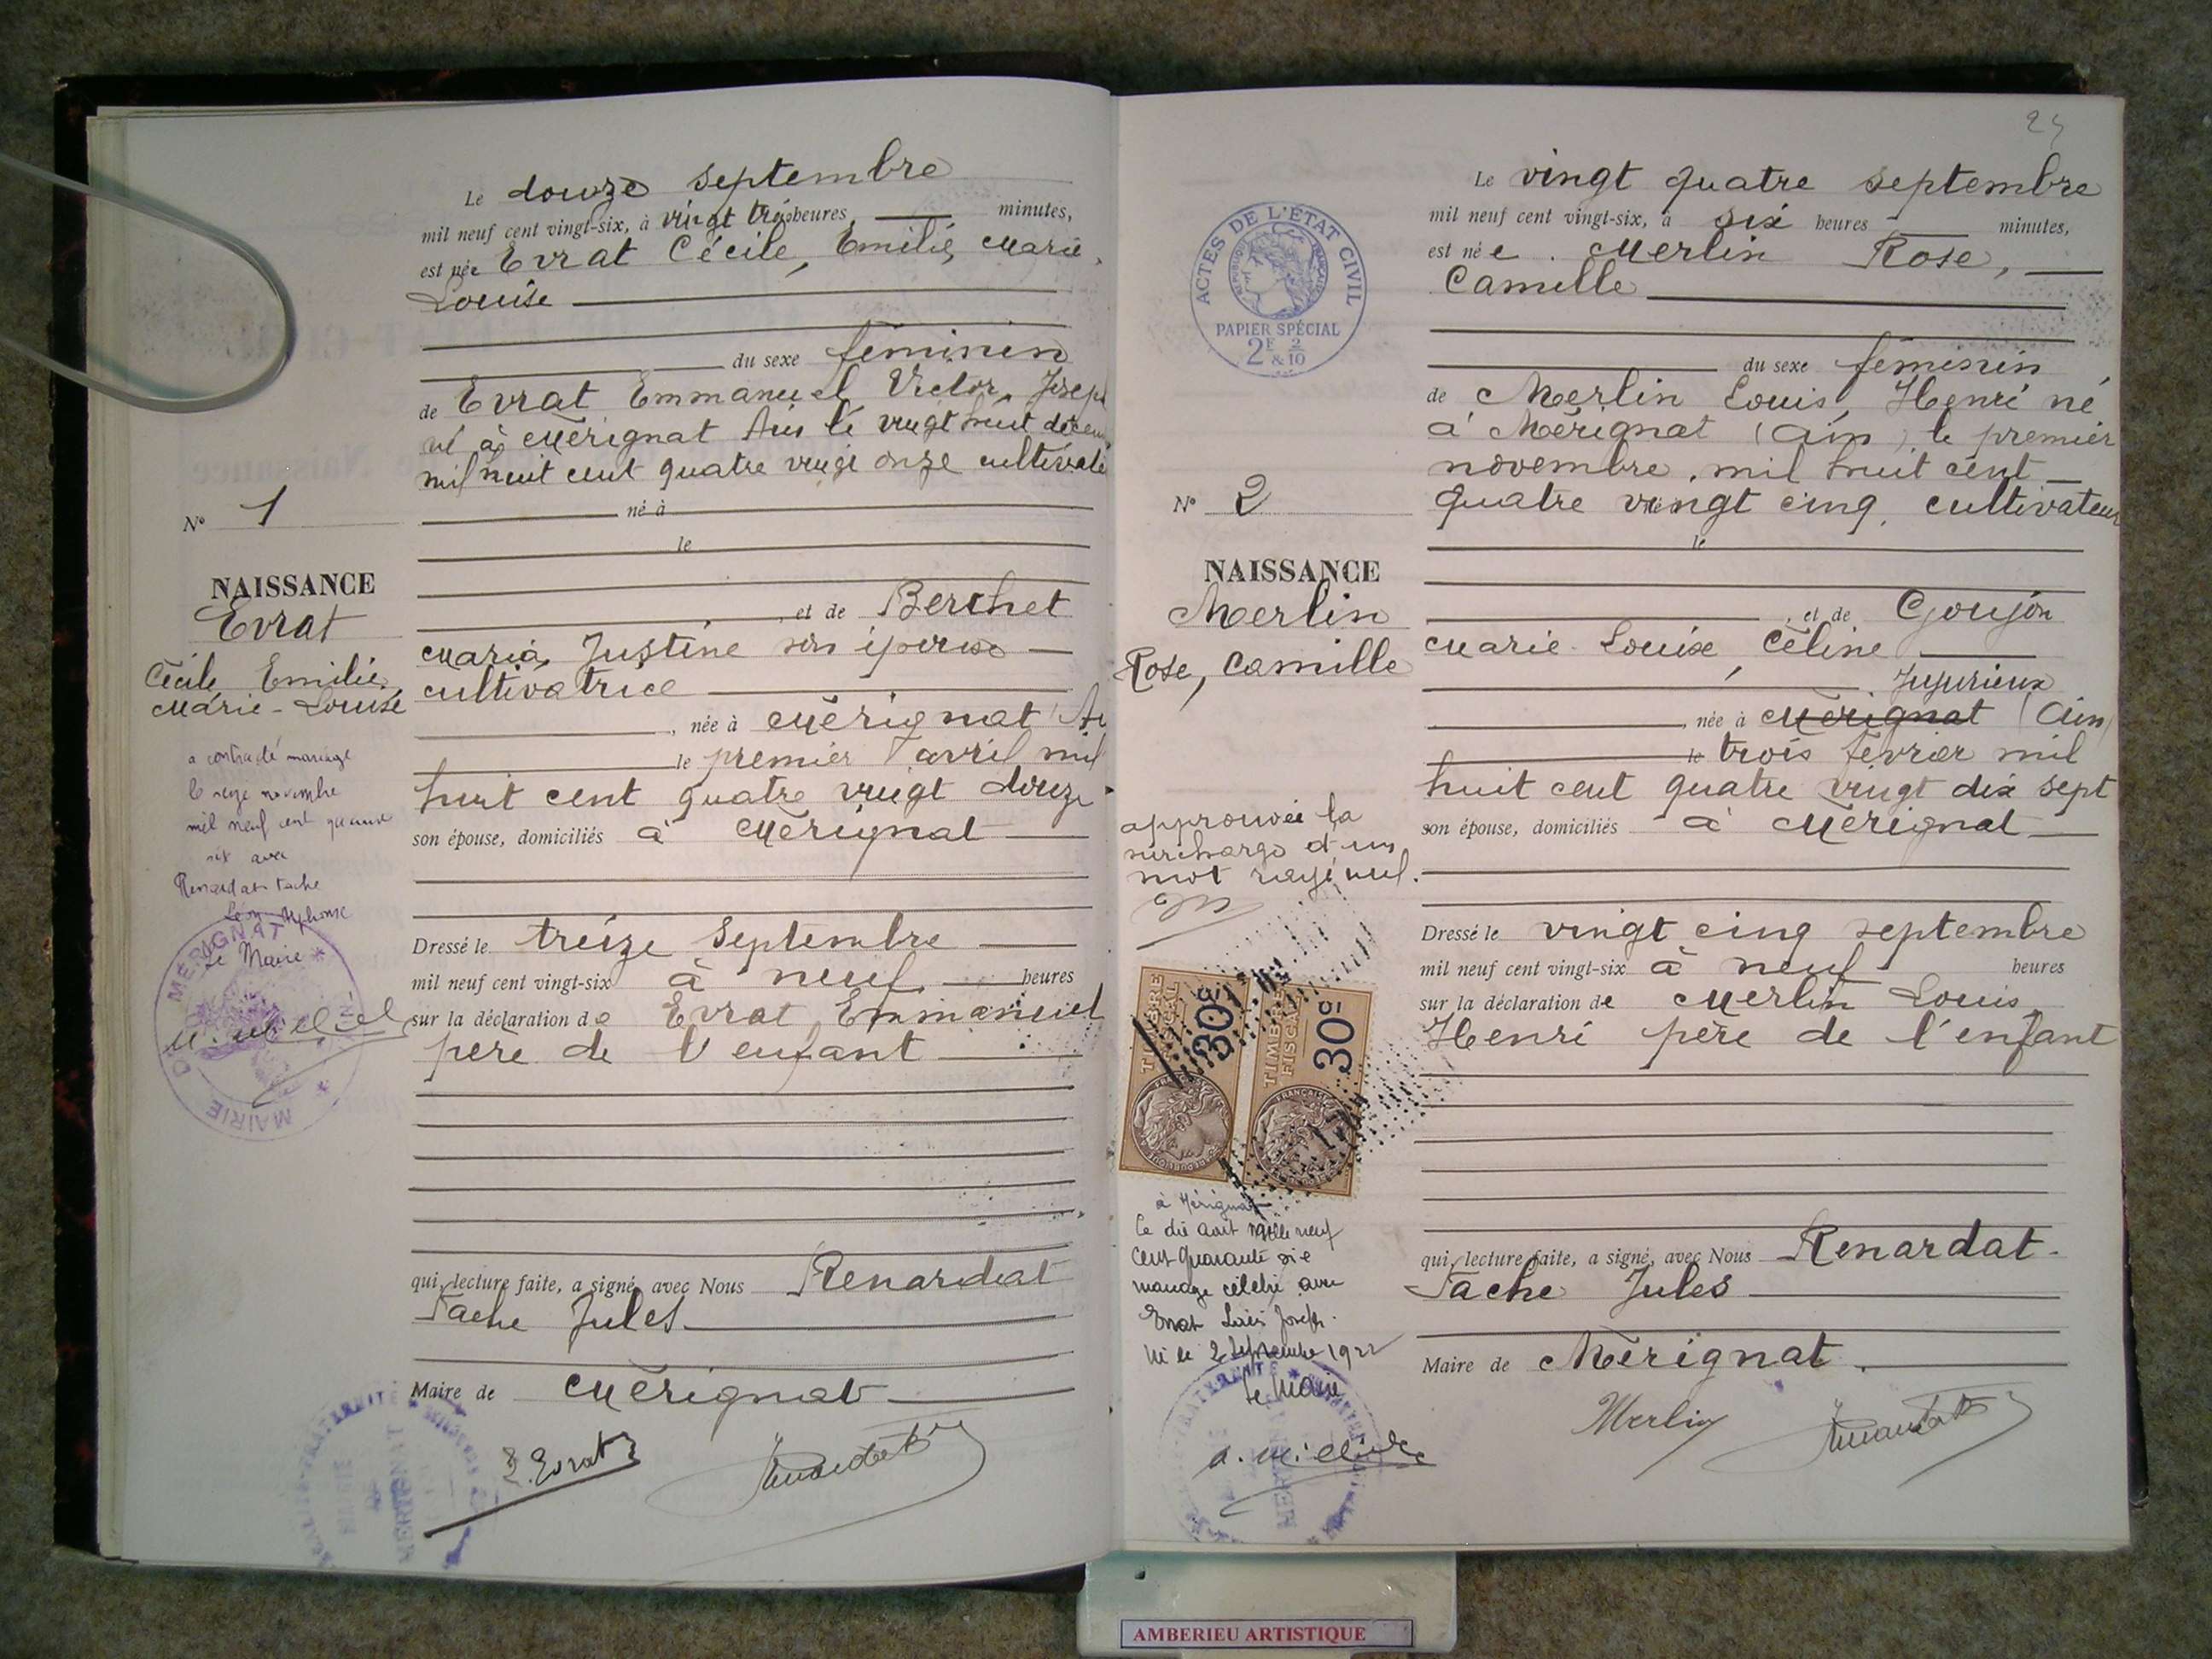 Le douze septembre
mil neuf cent vingt-six, à vingt trois heures, minutes,
est née Evrat Cécile, Emilie, Marie,
Louise
du sexe féminin
de Evrat Emmanuel, Victor, Josep
né à Mérignat Ain le vingt huit décem
mil huit cent quatre vingt onze cultivate
né à
le
N° 1
NAISSANCE
Evrat
Cécile, Emilie,
Marie-Louise
a contracté mariage
le seize novembre
mil neuf cent quarante
six avec
Renardat Tache
Léon Alphonse
Le Maire
MAIRIE DE MÉRIGNAT
, et de Berchet
Maria, Justine son épouse
cultivatrice
, née à Mérignat (Ai
le premier avril mil
huit cent quatre vingt douze
son épouse, domiciliés à Mérignat
Dressé le treize Septembre
mil neuf cent vingt-six à neuf heures
sur la déclaration de Evrat, Emmanuel
père de l'enfant
qui, lecture faite, a signé, avec Nous Renardat
Tache Jules
Maire de Mérignat
E. Evrat
Renardat
24
ACTES DE L'ÉTAT CIVIL
RÉPUBLIQUE FRANÇAISE
PAPIER SPÉCIAL
2F & 2/10
Le vingt quatre septembre
mil neuf cent vingt-six, à six heures minutes,
est née. Merlin Rose,
Camille
du sexe féminin
de Merlin Louis, Henri né
à Mérignat (Ain) le premier
novembre, mil huit cent
quatre vingt cinq, cultivateur
le
N° 2
NAISSANCE
Merlin
Rose, Camille
, et de Goujon
Marie Louise, Céline
Jujurieux
, née à Mérignat (Ain)
le trois février mil
huit cent quatre vingt dix sept
son épouse, domiciliés à Mérignat
approuvée la
surcharge d'un
mot rayé nul.
M
TIMBRE FISCAL 30c
TIMBRE FISCAL 30c
à Mérignat
le dix août mille neuf
cent quarante six
mariage célébré avec
Evrat Louis Joseph.
né le 2 Septembre 1922
Le Maire
Dressé le vingt cinq septembre
mil neuf cent vingt-six à neuf heures
sur la déclaration de Merlin Louis,
Henri père de l'enfant
qui, lecture faite, a signé, avec Nous Renardat-
Tache Jules
Maire de Mérignat.
Merlin
Renardat
AMBERIEU ARTISTIQUE